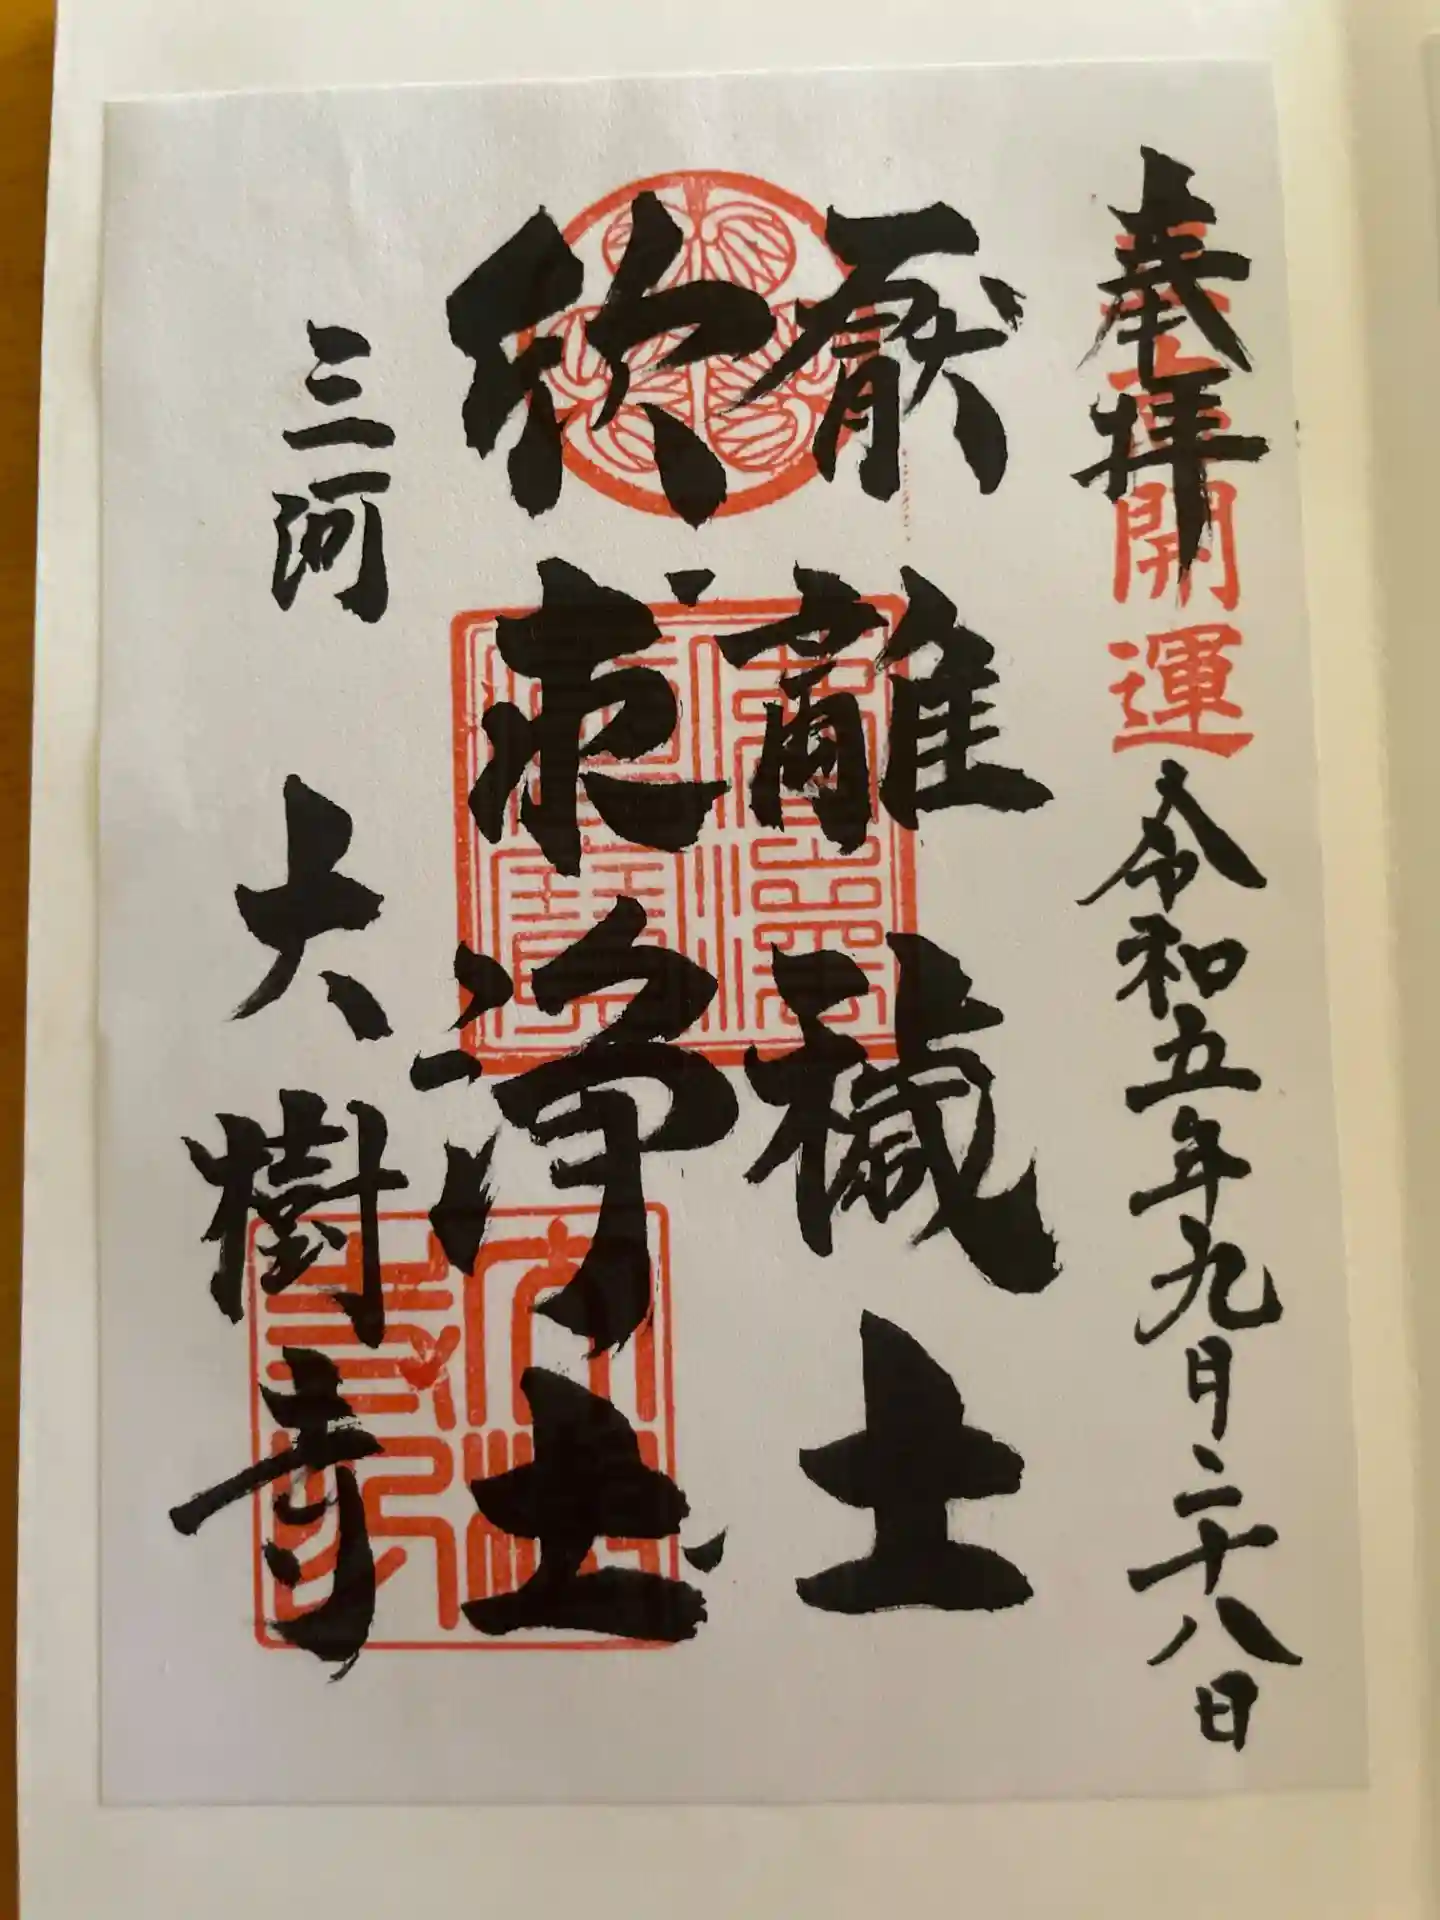 奉拝 令和五年九月二十八日
開運
厭離穢土
欣求浄土
三河 大樹寺